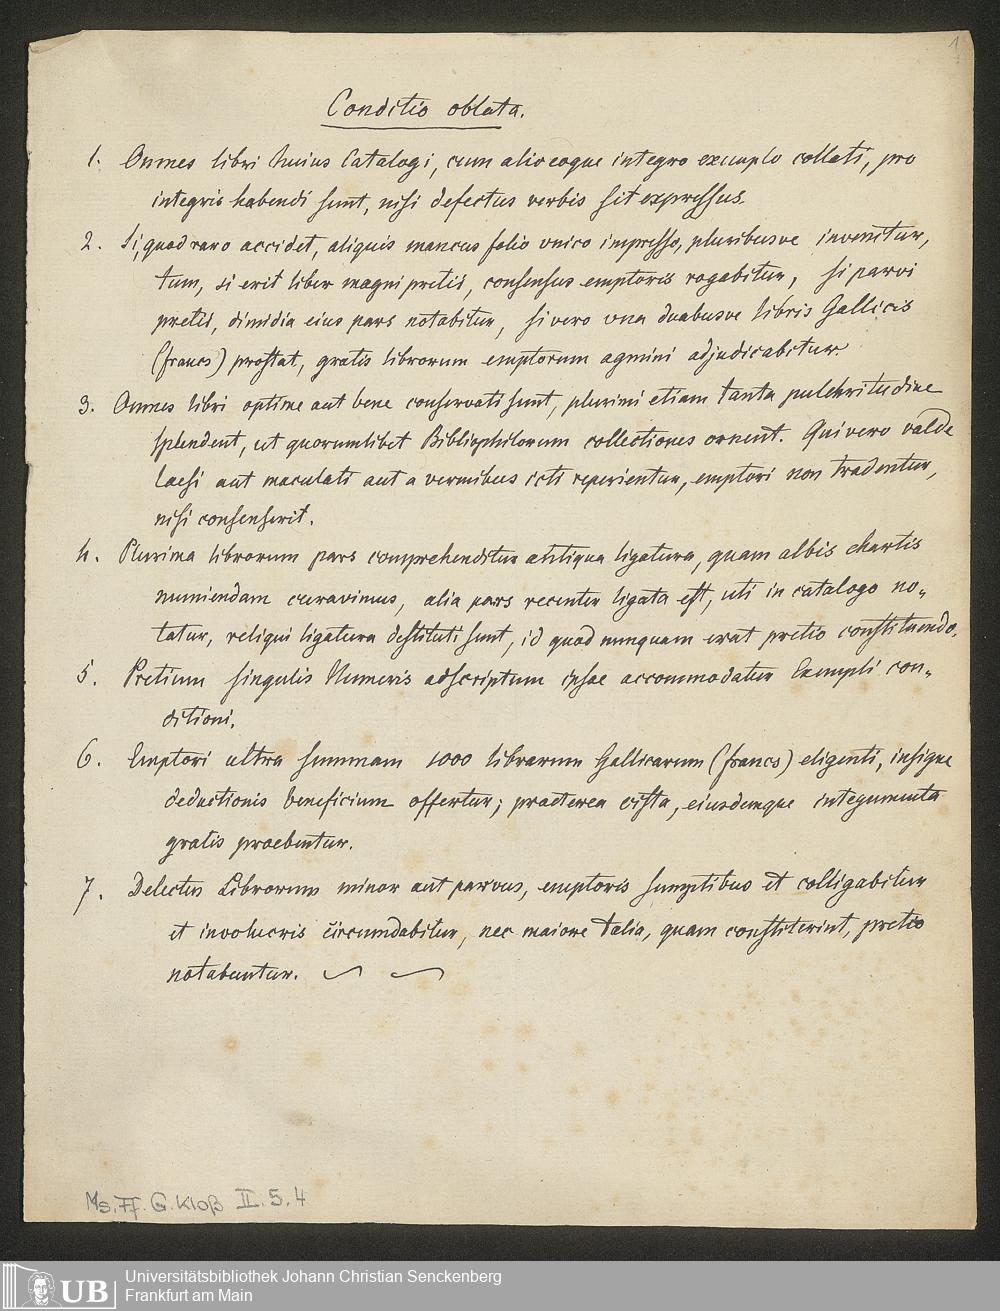 1
Conditio oblata.
1. Omnes libri huius Catalogi, cum alio eoque integro exemplo collati, pro
integris habendi sunt, nisi defectus verbis sit expressus.
2. Si, quod raro accidet, aliquis mancus folio unico impresso, pluribusve invenitur,
tum, si erit liber magni pretii, consensus emptoris rogabitur, si parvi
pretii, dimidia eius pars notabitur, si vero una duabusve libris Gallicis
(francs) prostat, gratis librorum emptorum agmini adjudicabitur.
3. Omnes libri optime aut bene conservati sunt, plurimi etiam tanta pulchritudine
splendent, ut quorumlibet Bibliophilorum collectiones ornent. Qui vero valde
laesi aut maculati aut a vermibus icti reperientur, emptori non tradentur,
nisi consenserit.
4. Plurima librorum pars comprehenditur antiqua ligatura, quam albis chartis
muniendam curavimus, alia pars recenter ligata est, uti in catalogo no-
tatur, reliqui ligatura destituti sunt, id quod nunquam erat pretio constituendo.
5. Pretium singulis Numeris adscriptum ipsae accommodatur Exempli con-
ditioni.
6. Emptori ultra summam 1000 librarum Gallicarum (francs) eligenti, insigne
deductionis beneficium offertur; praeterea cista, eiusdemque integumenta
gratis praebentur.
7. Delectus Librorum minor aut parvus, emptoris sumptibus et colligabitur
et involucris circumdabitur, nec maiore talia, quam constiterint, pretio
notabuntur.
Ms. Ff. G. Kloß II. 5. 4
UB
Universitätsbibliothek Johann Christian Senckenberg
Frankfurt am Main